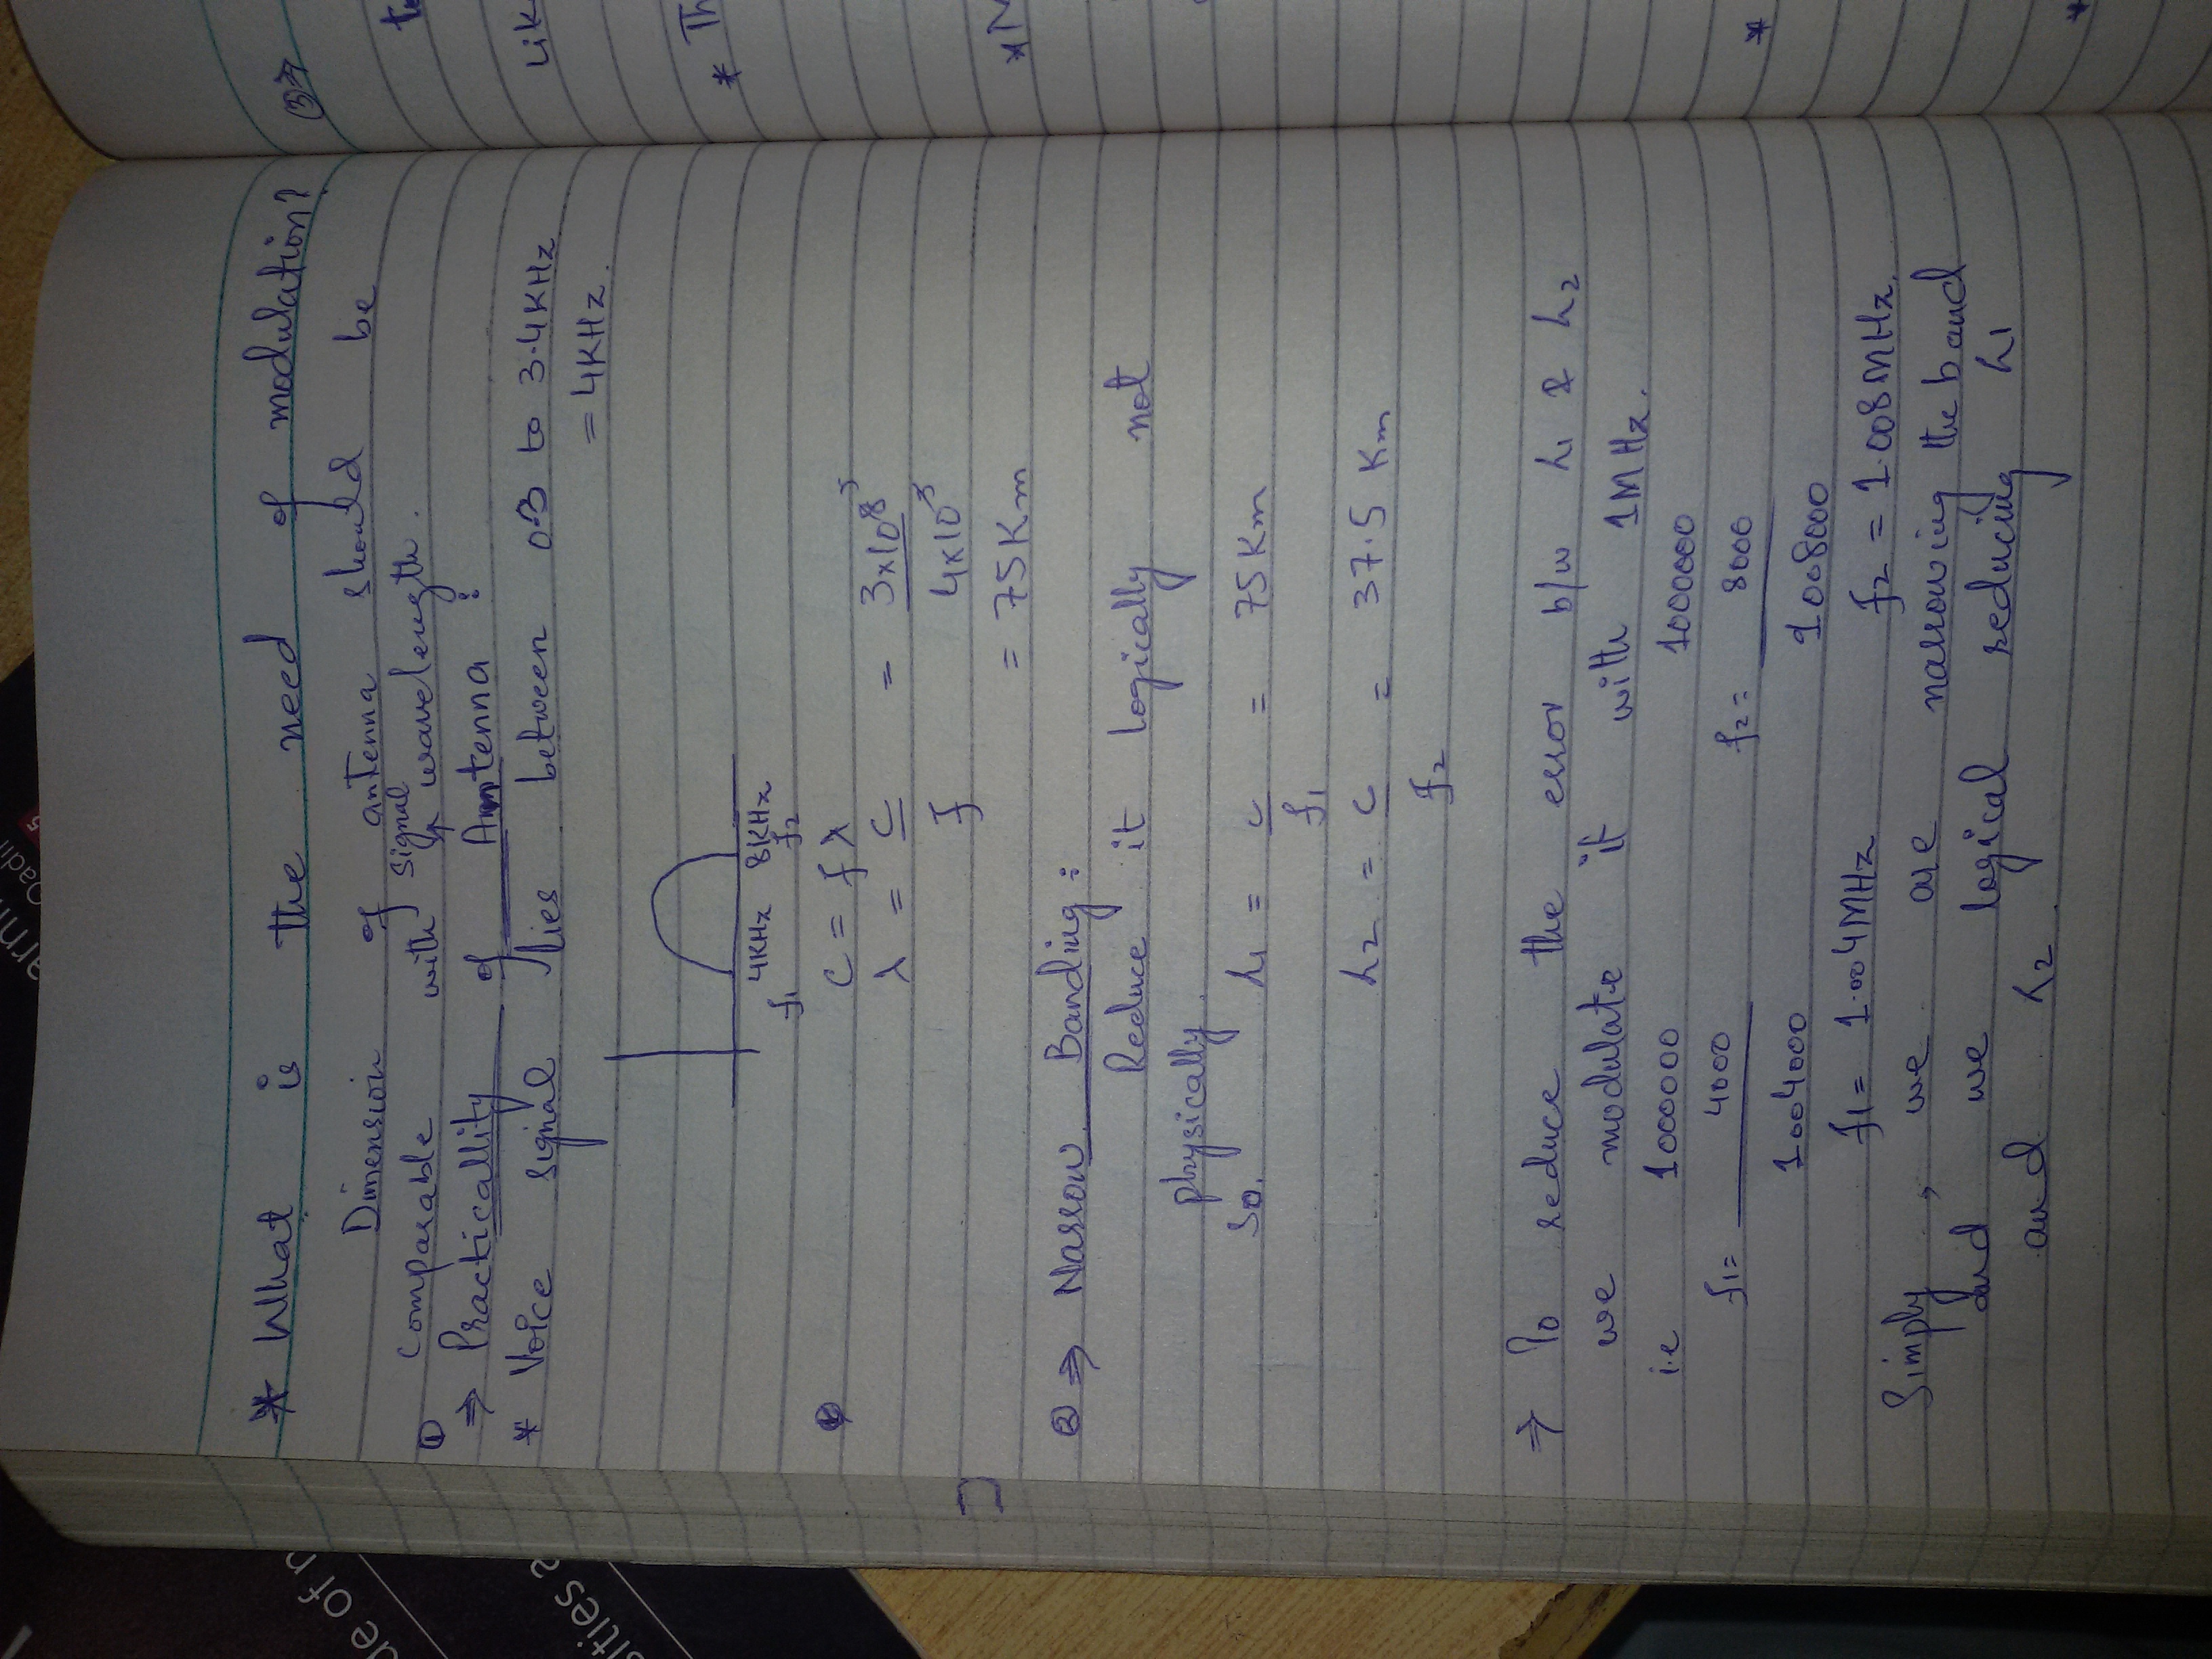 arni
Qadir
5
de of n
sities a
* What is the need of modulation?
Dimension of antenna should be
comparable with signal wavelength.
①
⇒ Practicallity of Antenna :
* Voice signal lies between 0.3 to 3.4KHz
= 4KHz.
4KHz 8KHz
f1 f2
C = fλ
λ = c/f = 3x10⁸⁵/4x10³
= 75Km
② ⇒ Narrow Banding :
Reduce it logically not
physically.
So, λ1 = c/f1 = 75Km
λ2 = c/f2 = 37.5 Km
⇒ To reduce the error b/w λ1 & λ2
we modulate it with 1MHz.
i.e 1000000 1000000
f1= 4000 f2= 8000
1004000 1008000
f1= 1.004MHz f2 = 1.008MHz.
Simply, we are narrowing the band
and we logical reducing λ1
and λ2.
③⇒
Lik
* Th
* N
*